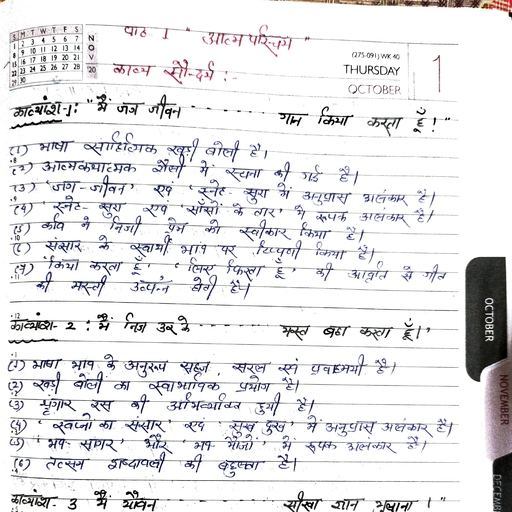 S M T W T F S
1 2 3 4 5 6 7
8 9 10 11 12 13 14
15 16 17 18 19 20 21
22 23 24 25 26 27 28
29 30
NOV '20
पाठ 1 " आत्म परिचय "
काव्य सौन्दर्य :-
(275-091) WK 40
THURSDAY
OCTOBER
1
काव्यांश-1: "मैं जग जीवन - - - - - - गान किया करता हूँ!"
(1) भाषा साहित्यिक खड़ी बोली है।
(2) आत्मकथात्मक शैली में रचना की गई है।
(3) 'जग-जीवन' एवं 'स्नेह-सुरा में अनुप्रास अलंकार है।
(4) 'स्नेह-सुरा एवं 'साँसों के तार' में रूपक अलंकार है।
(5) कवि ने निजी प्रेम को स्वीकार किया है।
(6) संसार के स्वार्थी भाव पर टिप्पणी किया है।
(7) 'किया करता हूँ', 'लिए फिरता हूँ' की आवृति से गीत
की मस्ती उत्पन्न होती है।
काव्यांश-2: मैं निज उर के - - - - - - मस्त बहा करता हूँ।'
(1) भाषा भाव के अनुरूप सहज, सरल एवं प्रवाहमयी है।
(2) खड़ी बोली का स्वाभाविक प्रयोग है।
(3) शृंगार रस की अभिव्यक्ति हुयी है।
(4) 'स्वप्नों का संसार' एवं 'सुख दुख' में अनुप्रास अलंकार है।
(5) 'भव-सागर' और 'भव-मौजों' में रूपक अलंकार है।
(6) तत्सम शब्दावली की बहुलता है।
काव्यांश-3 मैं यौवन - - - - - - सीखा ज्ञान भुलाना।"
OCTOBER
NOVEMBER
DECEMB